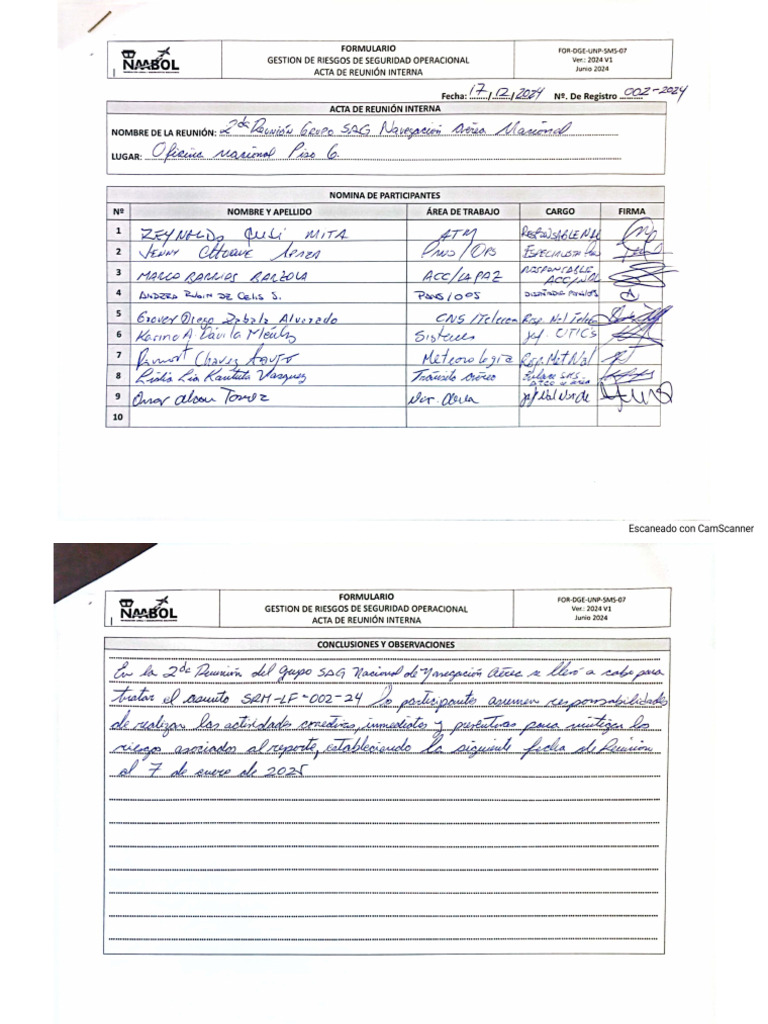 NAABOL
FORMULARIO
GESTION DE RIESGOS DE SEGURIDAD OPERACIONAL
ACTA DE REUNIÓN INTERNA
FOR-DGE-UNP-SMS-07
Ver.: 2024 V1
Junio 2024
Fecha: 17/12/2024 Nº. De Registro 002-2024
ACTA DE REUNIÓN INTERNA
NOMBRE DE LA REUNIÓN: 2da Reunión Grupo SAG Navegación Aérea Nacional
LUGAR: Oficina Nacional Piso 6.
NOMINA DE PARTICIPANTES
Nº NOMBRE Y APELLIDO ÁREA DE TRABAJO CARGO FIRMA
1 MITA ATM RESPONSABLE
2 JENNY PANS/OPS ESPECIALISTA
3 MARCO BARRIOS BARZOLA ACC/LA PAZ RESPONSABLE ACC/NAL
4 RUBIN DE CELIS S. PANS/OPS
5 Grover Diego Zabala Alvarado CNS/Telecom Resp. Nal
6 Karino A Dávila Sistemas
7 Chavez Meteorología Resp. Met Nal
8 Lidia Vasquez Tránsito Aéreo Enlace SMS
9 Omar Torrez
10
Escaneado con CamScanner
NAABOL
FORMULARIO
GESTION DE RIESGOS DE SEGURIDAD OPERACIONAL
ACTA DE REUNIÓN INTERNA
FOR-DGE-UNP-SMS-07
Ver.: 2024 V1
Junio 2024
CONCLUSIONES Y OBSERVACIONES
En la 2da Reunión del grupo SAG Nacional de Navegación Aérea se llevó a cabo para
tratar el asunto SRM-LF-002-24 los participantes asumen responsabilidades
de realizar las actividades correctivas, inmediatas y preventivas para mitigar los
riesgo asociados al reporte, estableciendo la siguiente fecha de Reunión
el 7 de enero de 2025